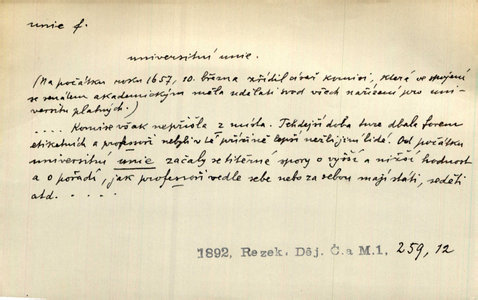 unie f.
universitní unie.
(Na počátku roku 1657, 10. března zřídil císař komisi, která ve spojení
se senátem akademickým měla udělati svod všech nařízení pro uni-
versitu platných.)
.... Komise však nepřišla z místa. Tehdejší doba tuze dbala forem
etiketních a professoři nebyli v té příčině lepší nežli jiní lidé. Od počátku
universitní unie začaly se titěrné spory o vyšší a nižší hodnost
a o pořadí, jak professoři vedle sebe nebo za sebou mají státi, seděti
atd. . . . . .
1892, Rezek. Děj. Č. a M. 1, 259, 12